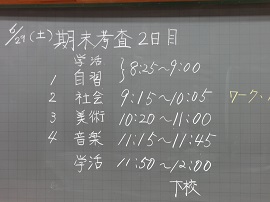 6/29(土) 期末考査 2日目
学活
1 自習 } 8:25~9:00
2 社会 9:15~10:05 ワーク、
3 美術 10:20~11:00
4 音楽 11:15~11:45
学活 11:50~12:00
下校